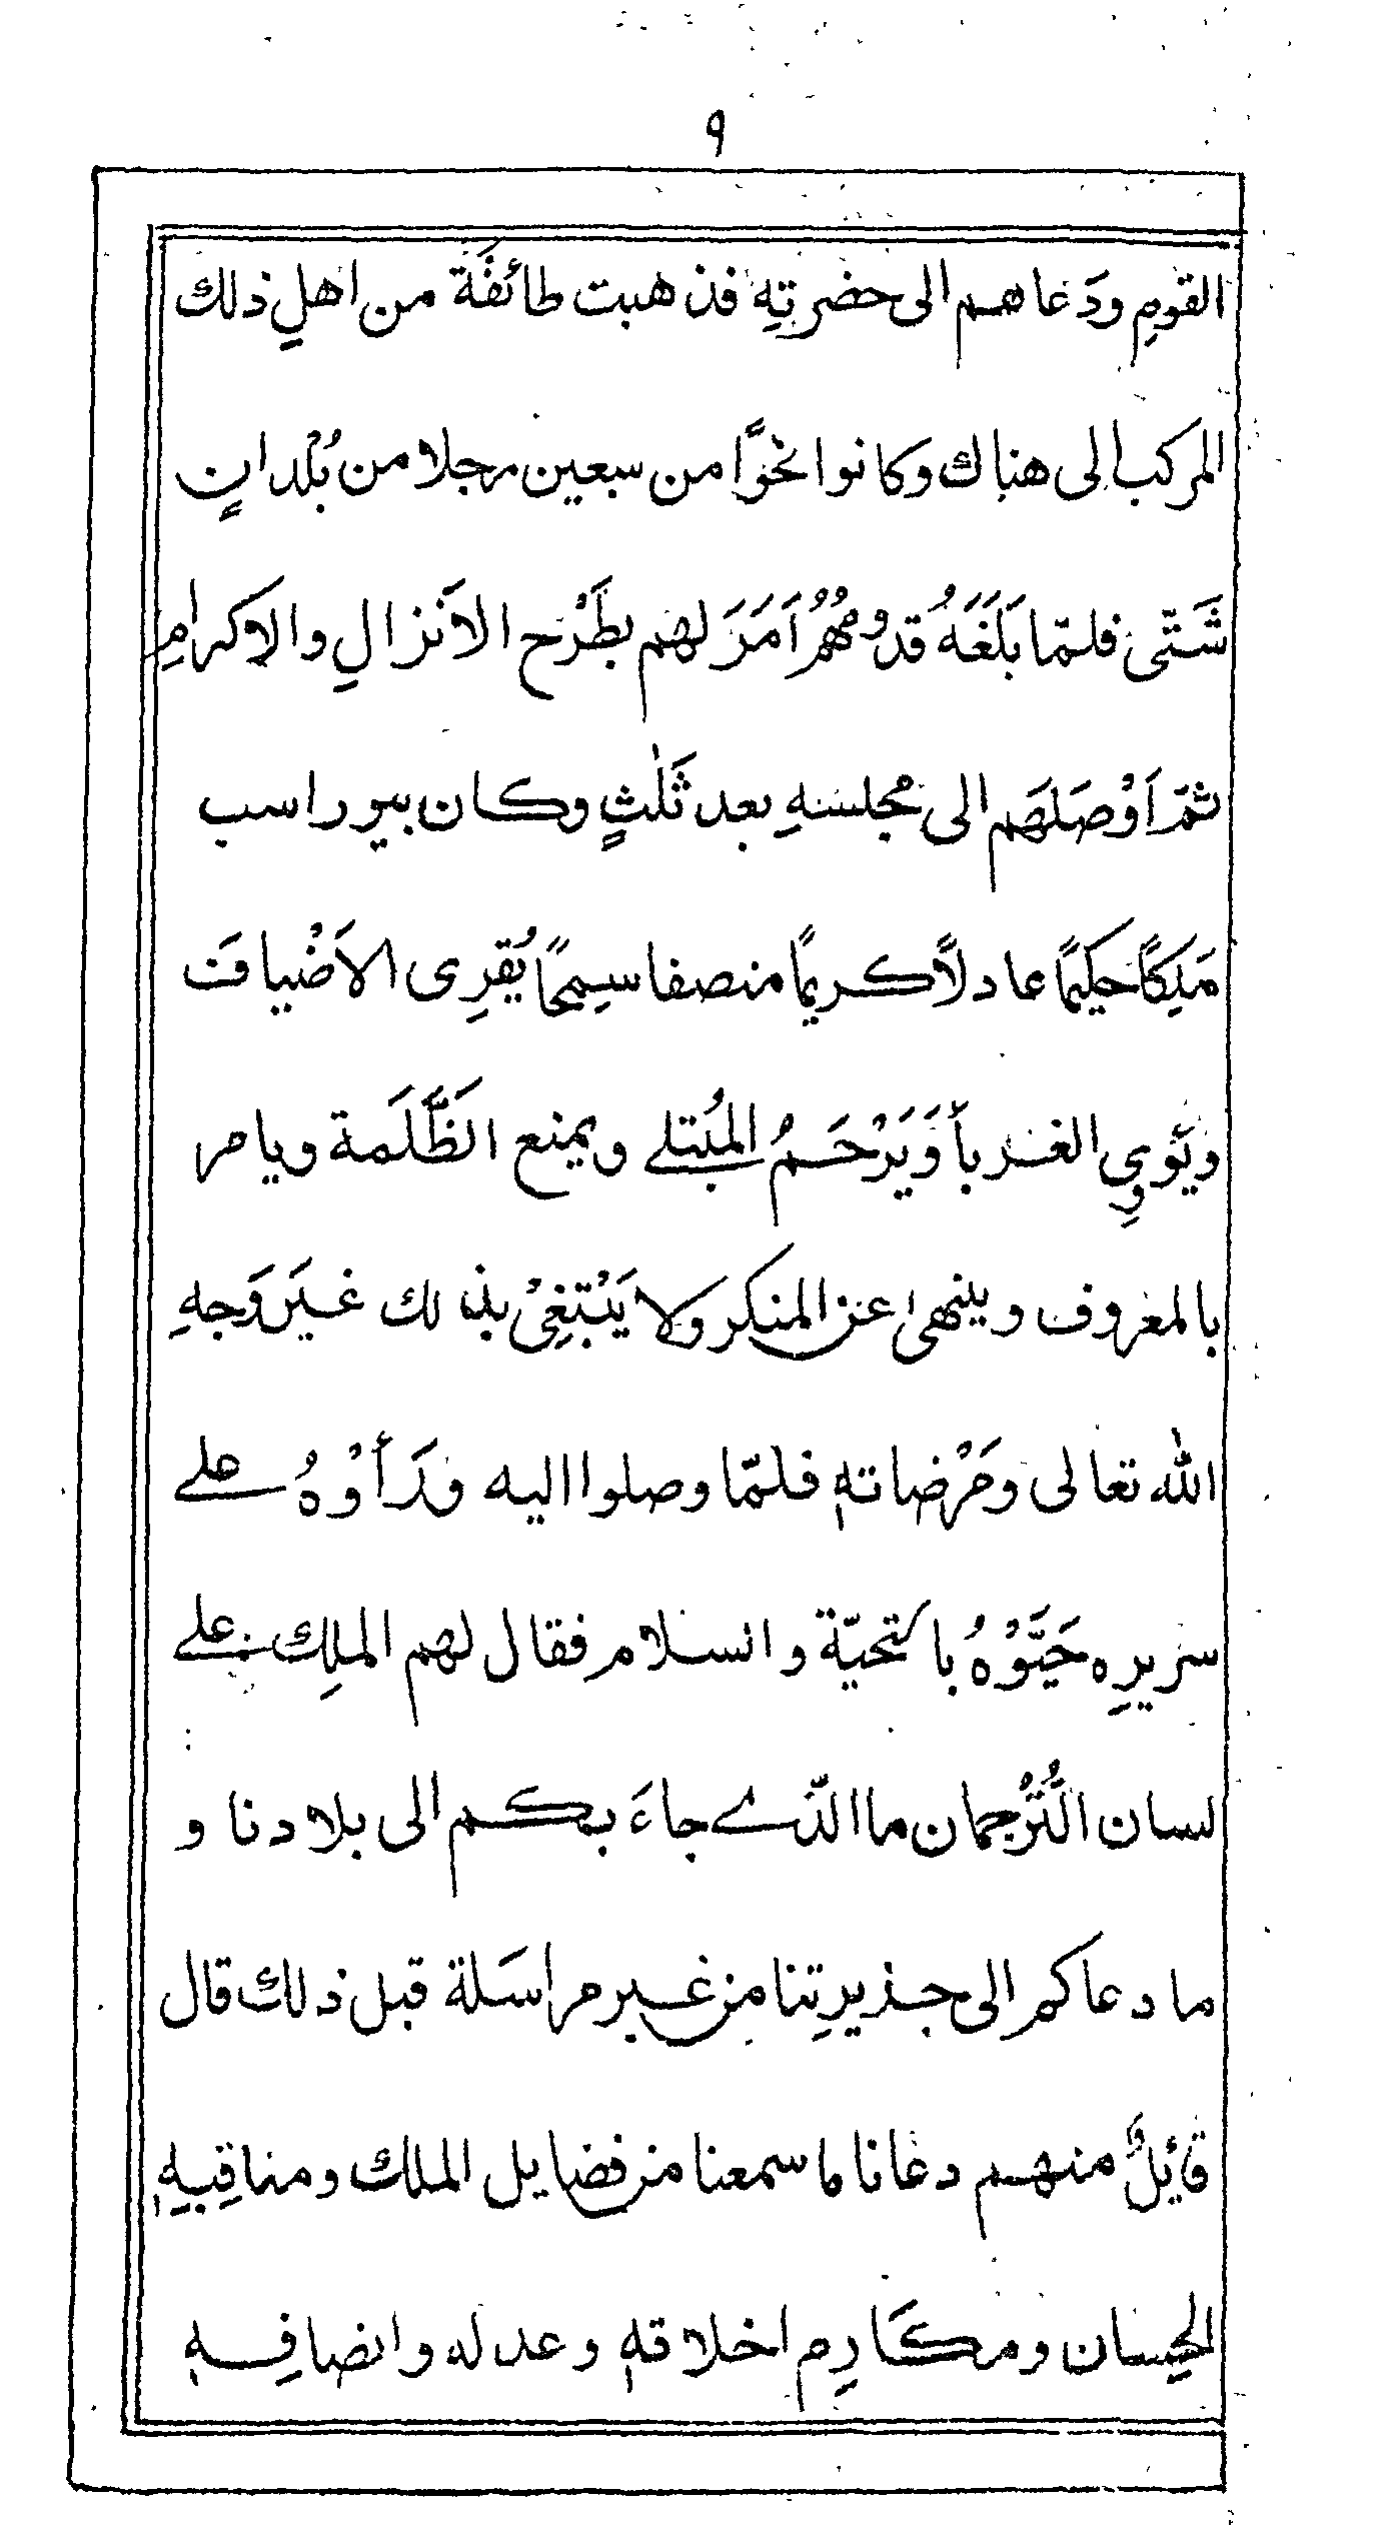 ٩
القومِ ودَعاهم الى حضرتِهِ فذهبت طائفَة من اهلِ ذلك
المركب الى هناك وكانوا نحوًا من سبعين رجلا من بُلْدانٍ
شَتّى فلمّا بَلَغَهُ قدومُهُمُ اَمَرَ لهم بطَرْح الاَنزالِ والاكرامِ
ثمّ اَوْصَلَهَم الى مجلسهِ بعد ثَلٰثٍ وكان بيوراسب
مَلِكاً حكيمًا عادلاً كريمًا منصفا سمِحًا يُقرِى الاَضْيافَ
ويُؤوِي الغربأ وَيَرْحَمُ المُبتلے ويمنع الظَّلَمة ويامر
بالمعروف وينهىٰ عن المنكر ولا يَبْتغِىْ بذلك غيَر وَجهِ
الله تعالى ومَرْضاتهٖ فلمّا وصلوا اليه ورَأَوْهُ علے
سريرِه حَيَّوْهُ بالتحيّة والسلام فقال لهم الملِك علے
لسان التُّرْجمان ما الذّے جاءَ بكم الى بلادنا و
ما دعاكم الى جذيرتِنا من غير مراسَلة قبل ذلك قال
قائلٌ منهم دعانا ما سمعنا من فضايل الملك ومناقِبهٖ
الحِسان ومكَارِم اخلاقهٖ وعدله وانصافِهٖ